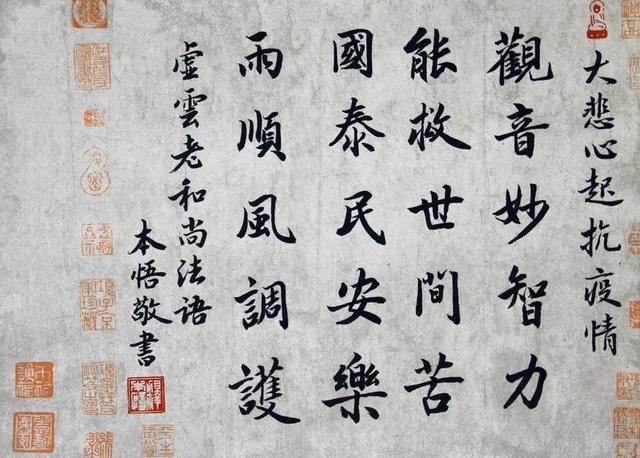 大悲心起抗疫情
觀音妙智力
能救世間苦
國泰民安樂
雨順風調護
虛雲老和尚法语
本悟敬書